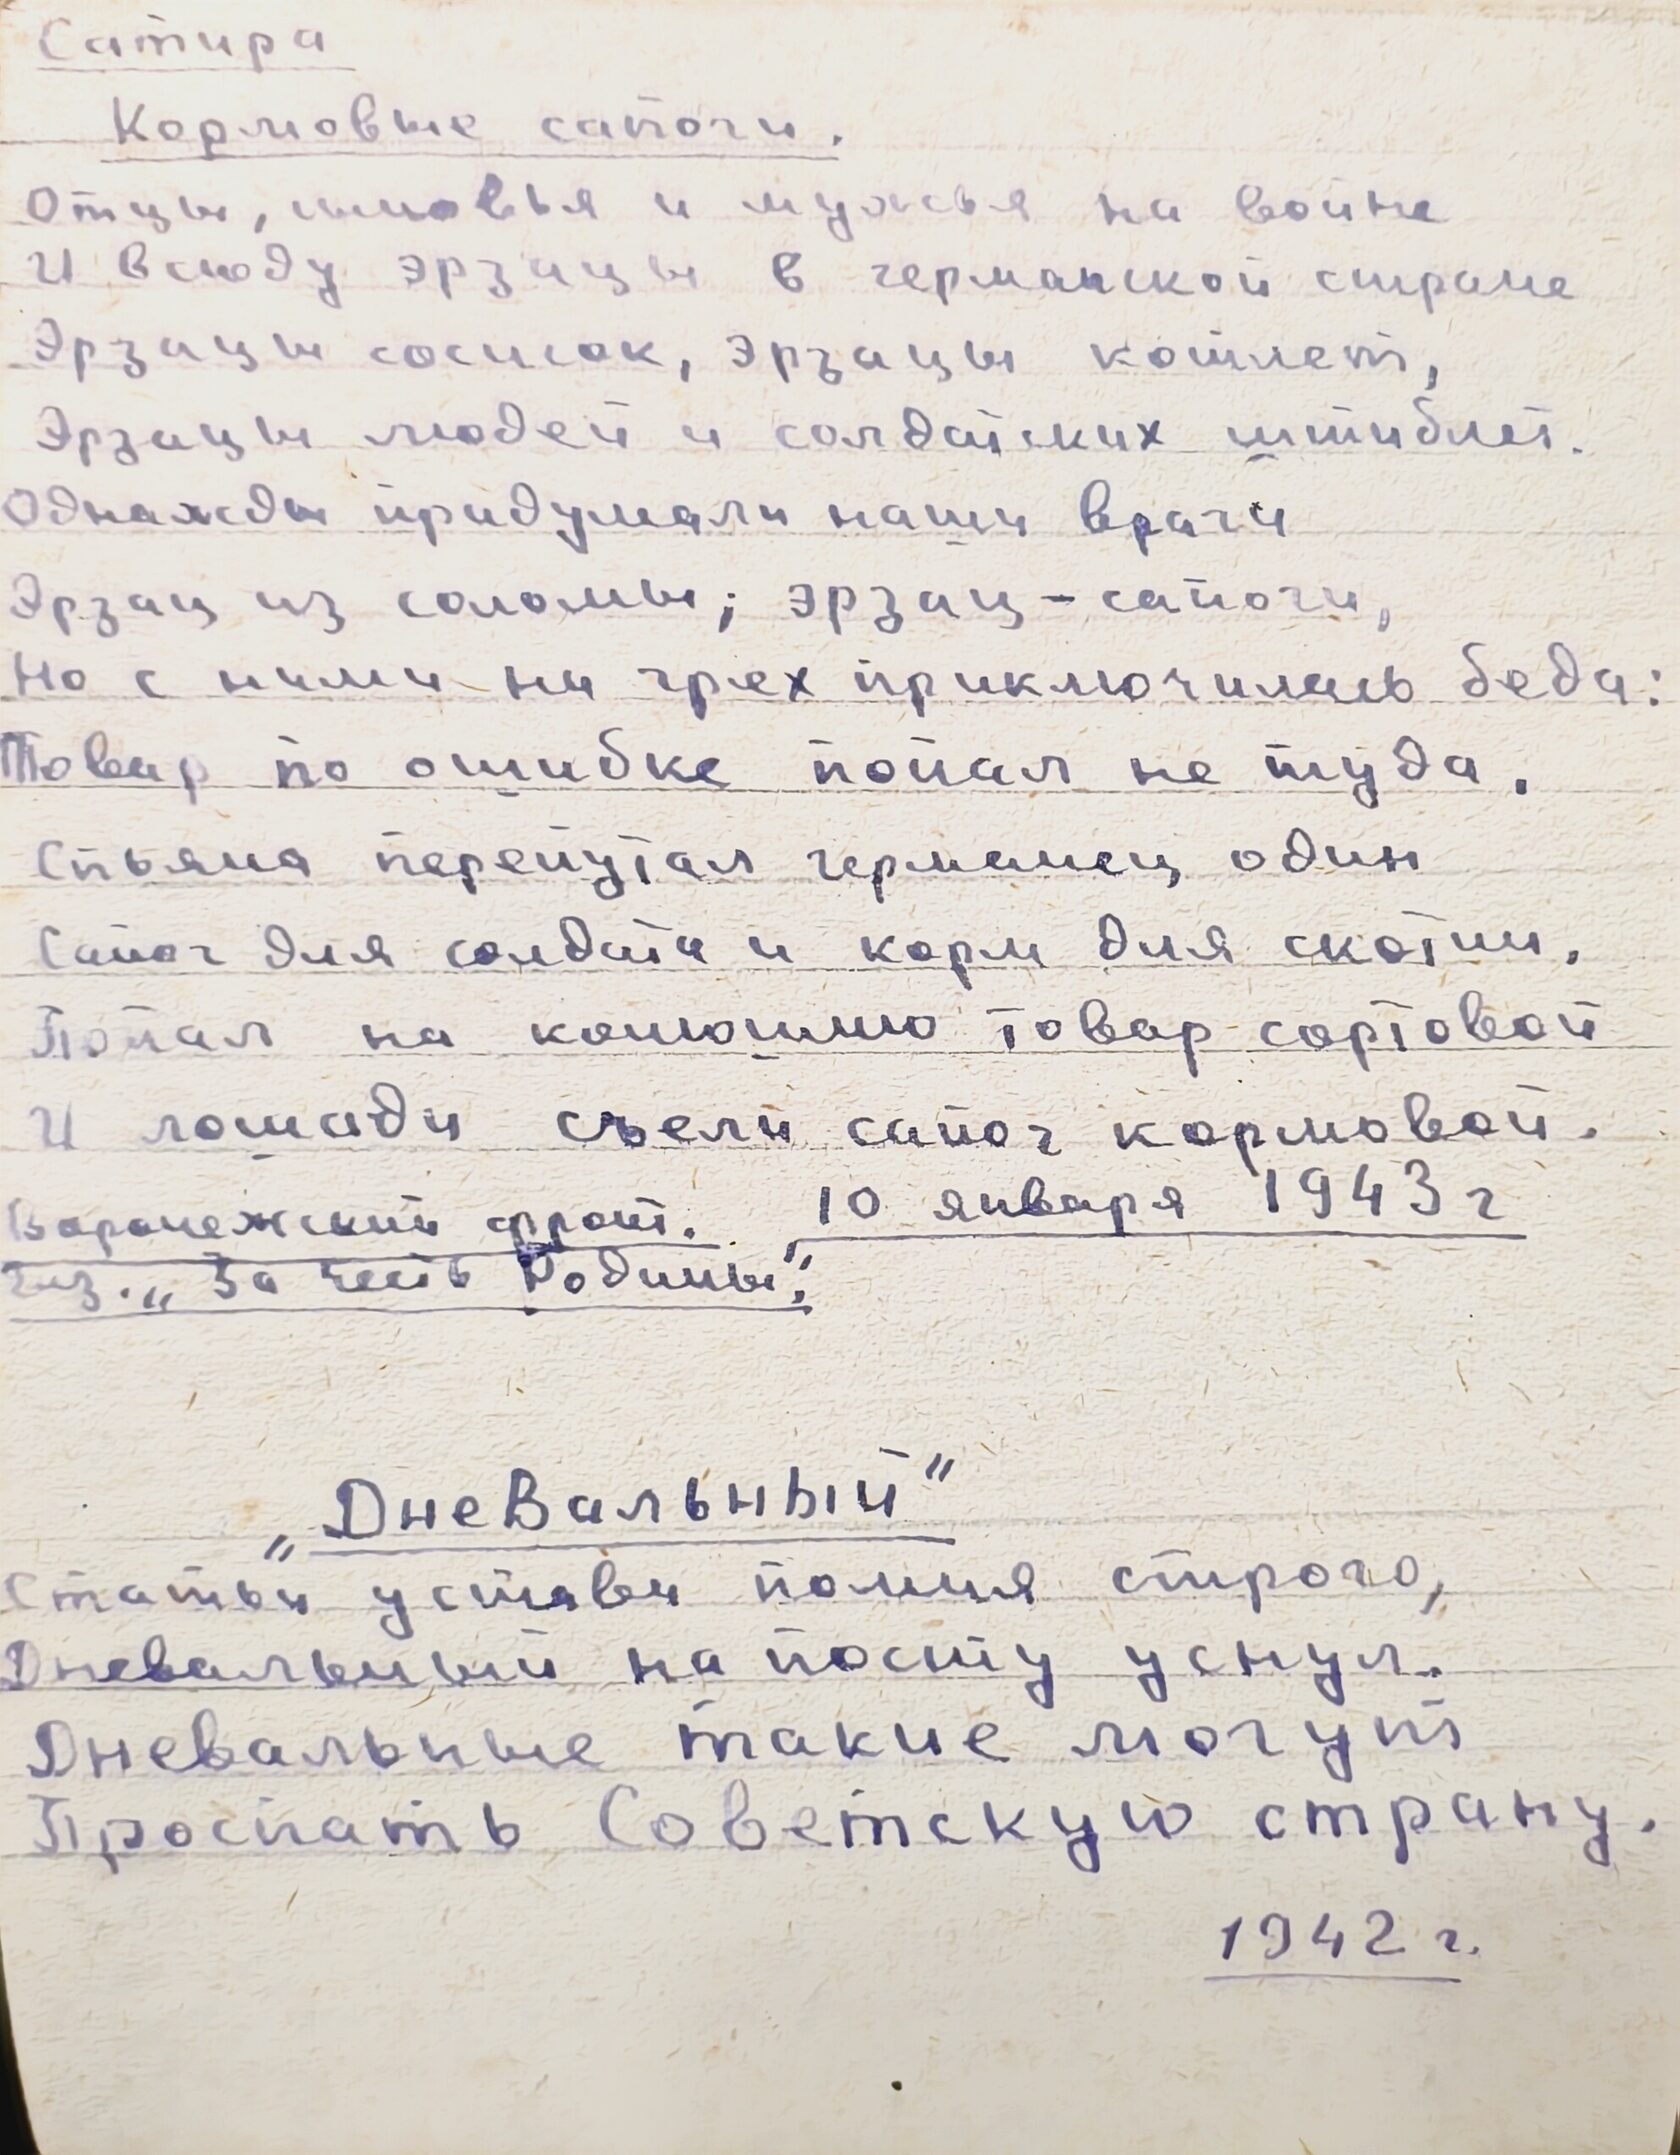 Сатира
Кормовые сапоги.
Отцы, сыновья и мужья на войне
И всюду эрзацы в германской стране
Эрзацы сосисок, эрзацы котлет,
Эрзацы людей и солдатских штиблет.
Однажды придумали наши враги
Эрзац из соломы; эрзац-сапоги,
Но с ними на грех приключилась беда:
Товар по ошибке попал не туда.
Спьяна перепутал германец один
Сапог для солдата и корм для скотин.
Попал на конюшню товар сортовой
И лошади съели сапог кормовой.
Воронежский фронт. 10 января 1943 г
газ. „За честь Родины".
„Дневальный"
Статьи устава помня строго,
Дневальный на посту уснул.
Дневальные такие могут
Проспать Советскую страну.
1942 г.